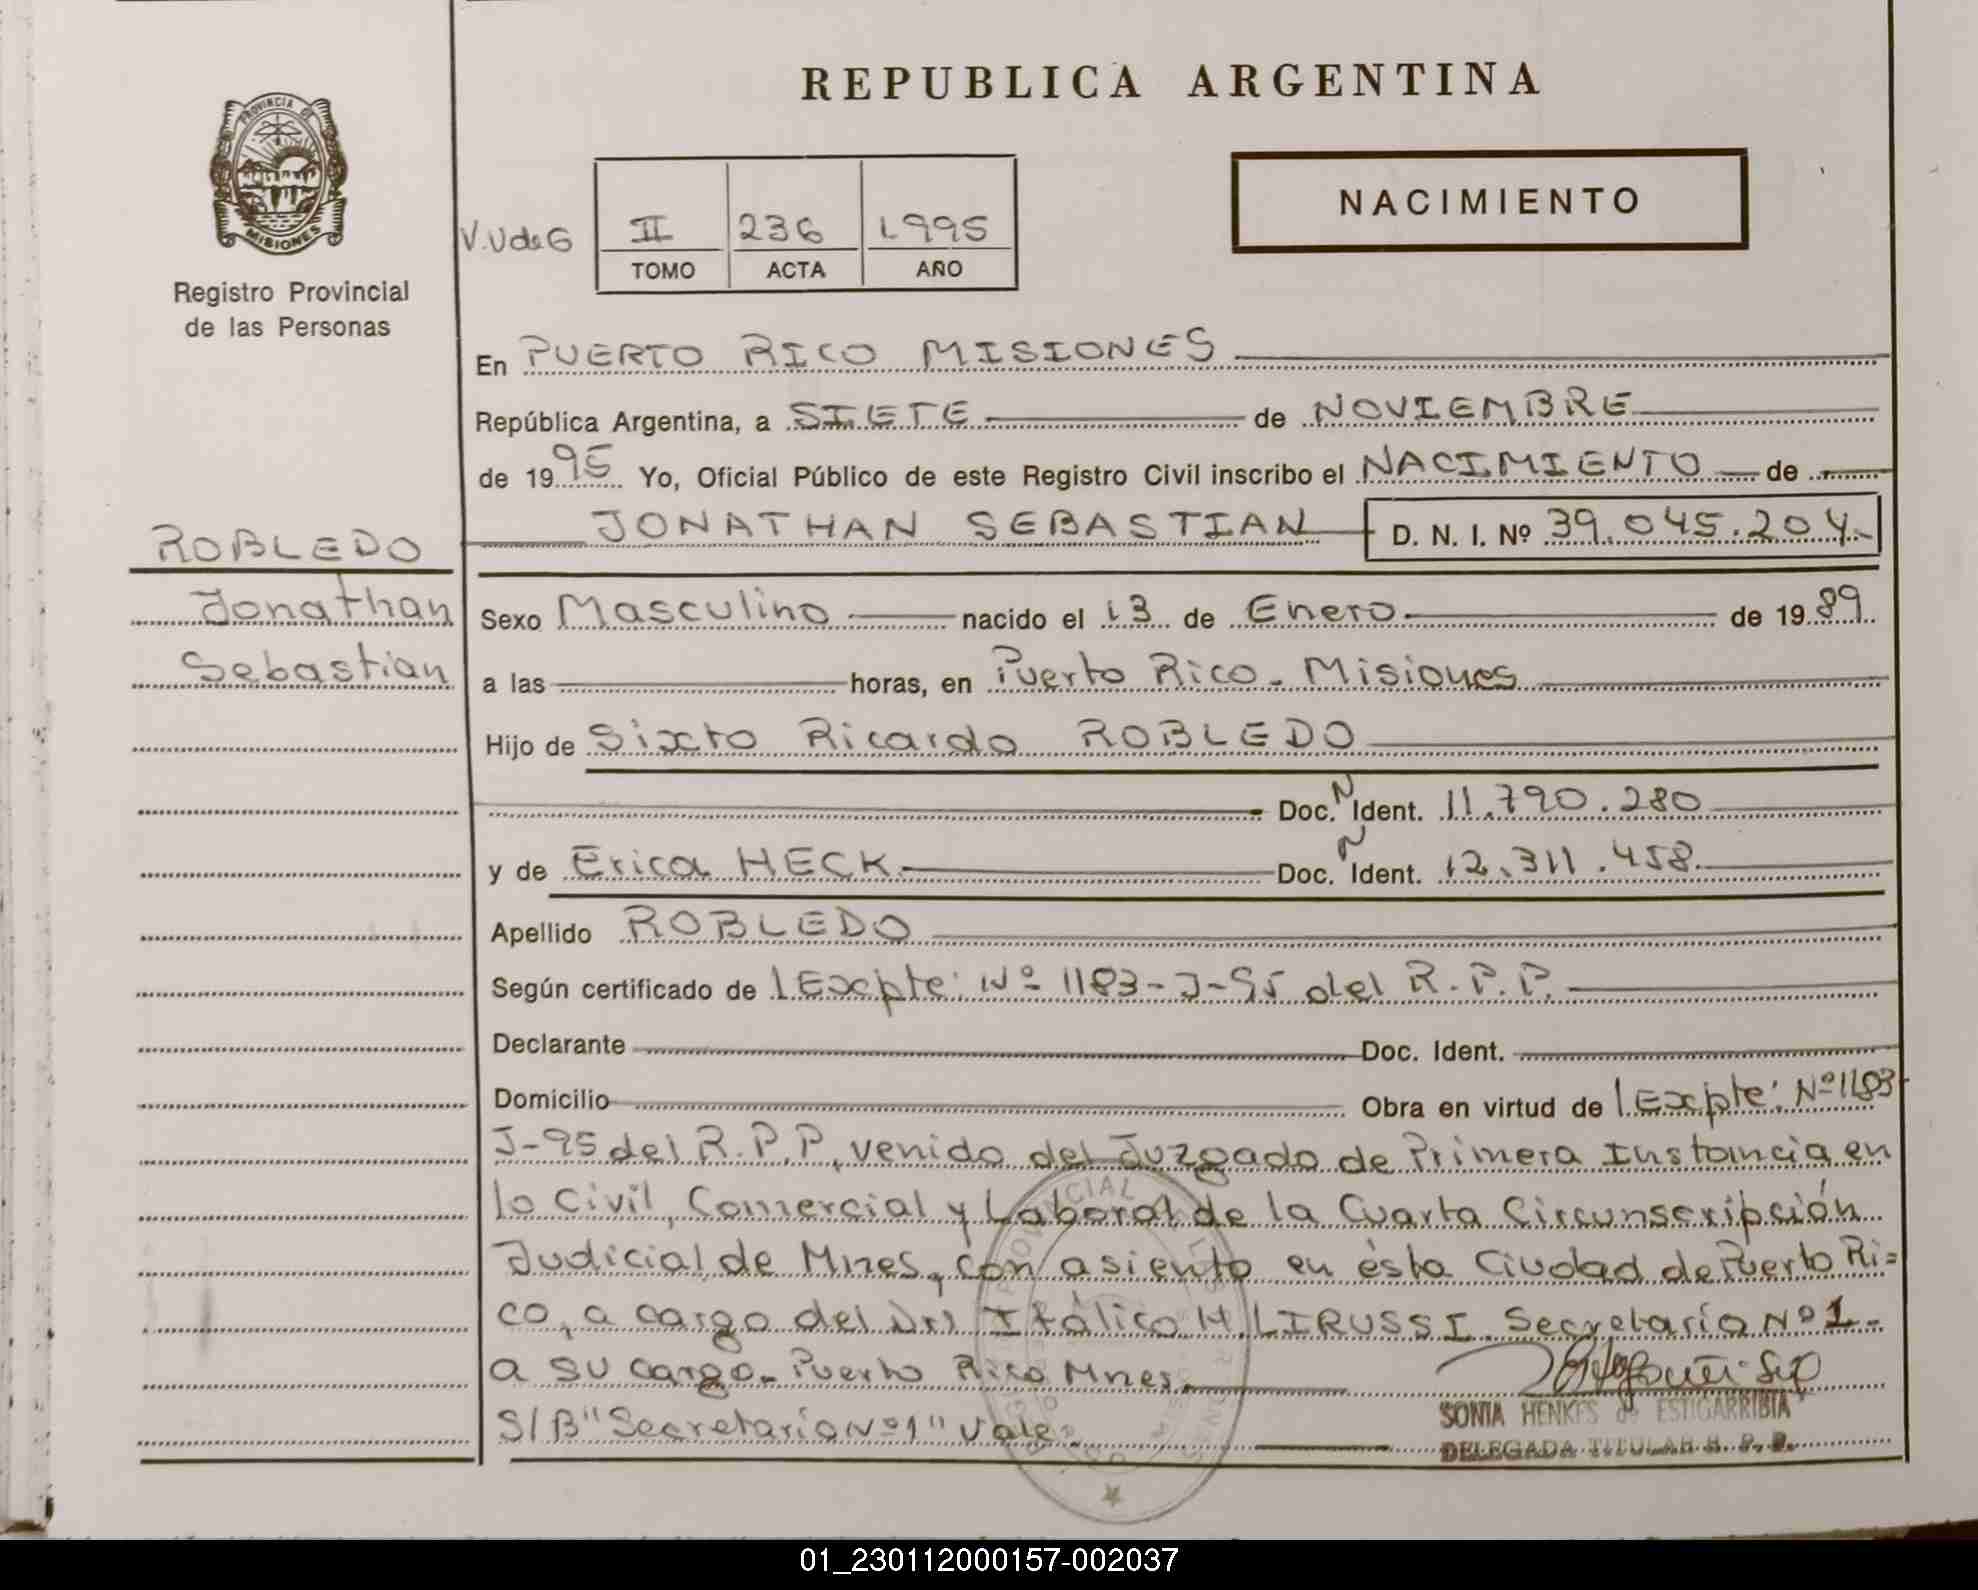 REPUBLICA ARGENTINA
PROVINCIA DE
MISIONES
Registro Provincial
de las Personas
NACIMIENTO
V.V de G
II 236 1995
TOMO ACTA AÑO
En PUERTO RICO MISIONES
República Argentina, a SIETE de NOVIEMBRE
de 1995 Yo, Oficial Público de este Registro Civil inscribo el NACIMIENTO de
JONATHAN SEBASTIAN D. N. I. Nº 39.045.204.
ROBLEDO
Jonathan
Sebastian
Sexo Masculino nacido el 13 de Enero de 1989
a las horas, en Puerto Rico - Misiones
Hijo de Sixto Ricardo ROBLEDO
Doc. N Ident. 11.790.280
y de Erica HECK Doc. N Ident. 12.311.458
Apellido ROBLEDO
Según certificado de Expte: Nº 1183-J-95 del R.P.P.
Declarante Doc. Ident.
Domicilio Obra en virtud de Expte: Nº 1183
J-95 del R.P.P, venido del Juzgado de Primera Instancia en
lo Civil, Comercial y Laboral de la Cuarta Circunscripción
Judicial de Mnes, con asiento en ésta Ciudad de Puerto Ri=
co, a cargo del Itálico H. LIRUSSI. Secretaría Nº 1-
a su cargo- Puerto Rico Mnes.
S/B "Secretaría Nº 1" Vale
SONIA HENKES de ESTIGARRIBIA
DELEGADA TITULAR R. P. P.
PROVINCIAL
01_230112000157-002037